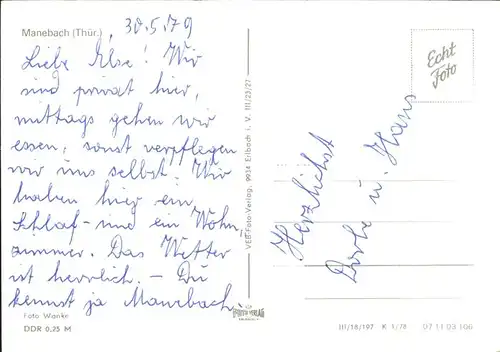 Manebach (Thür.) , 30.5.79
Liebe Else! Wir
sind privat hier,
mittags gehen wir
essen, sonst verpflegen
wir uns selbst. Wir
haben hier ein
Schlaf- und ein Wohn-
zimmer. Das Wetter
ist herrlich. – Du
kennst ja Manebach.
Foto Wanke
DDR 0,25 M
VEB Foto-Verlag, 9934 Erlbach i. V. III/23/27
FOTO VERLAG
Echt
Foto
Herzlichst
u. Hans
III/18/197 K 1/78 07 11 03 166